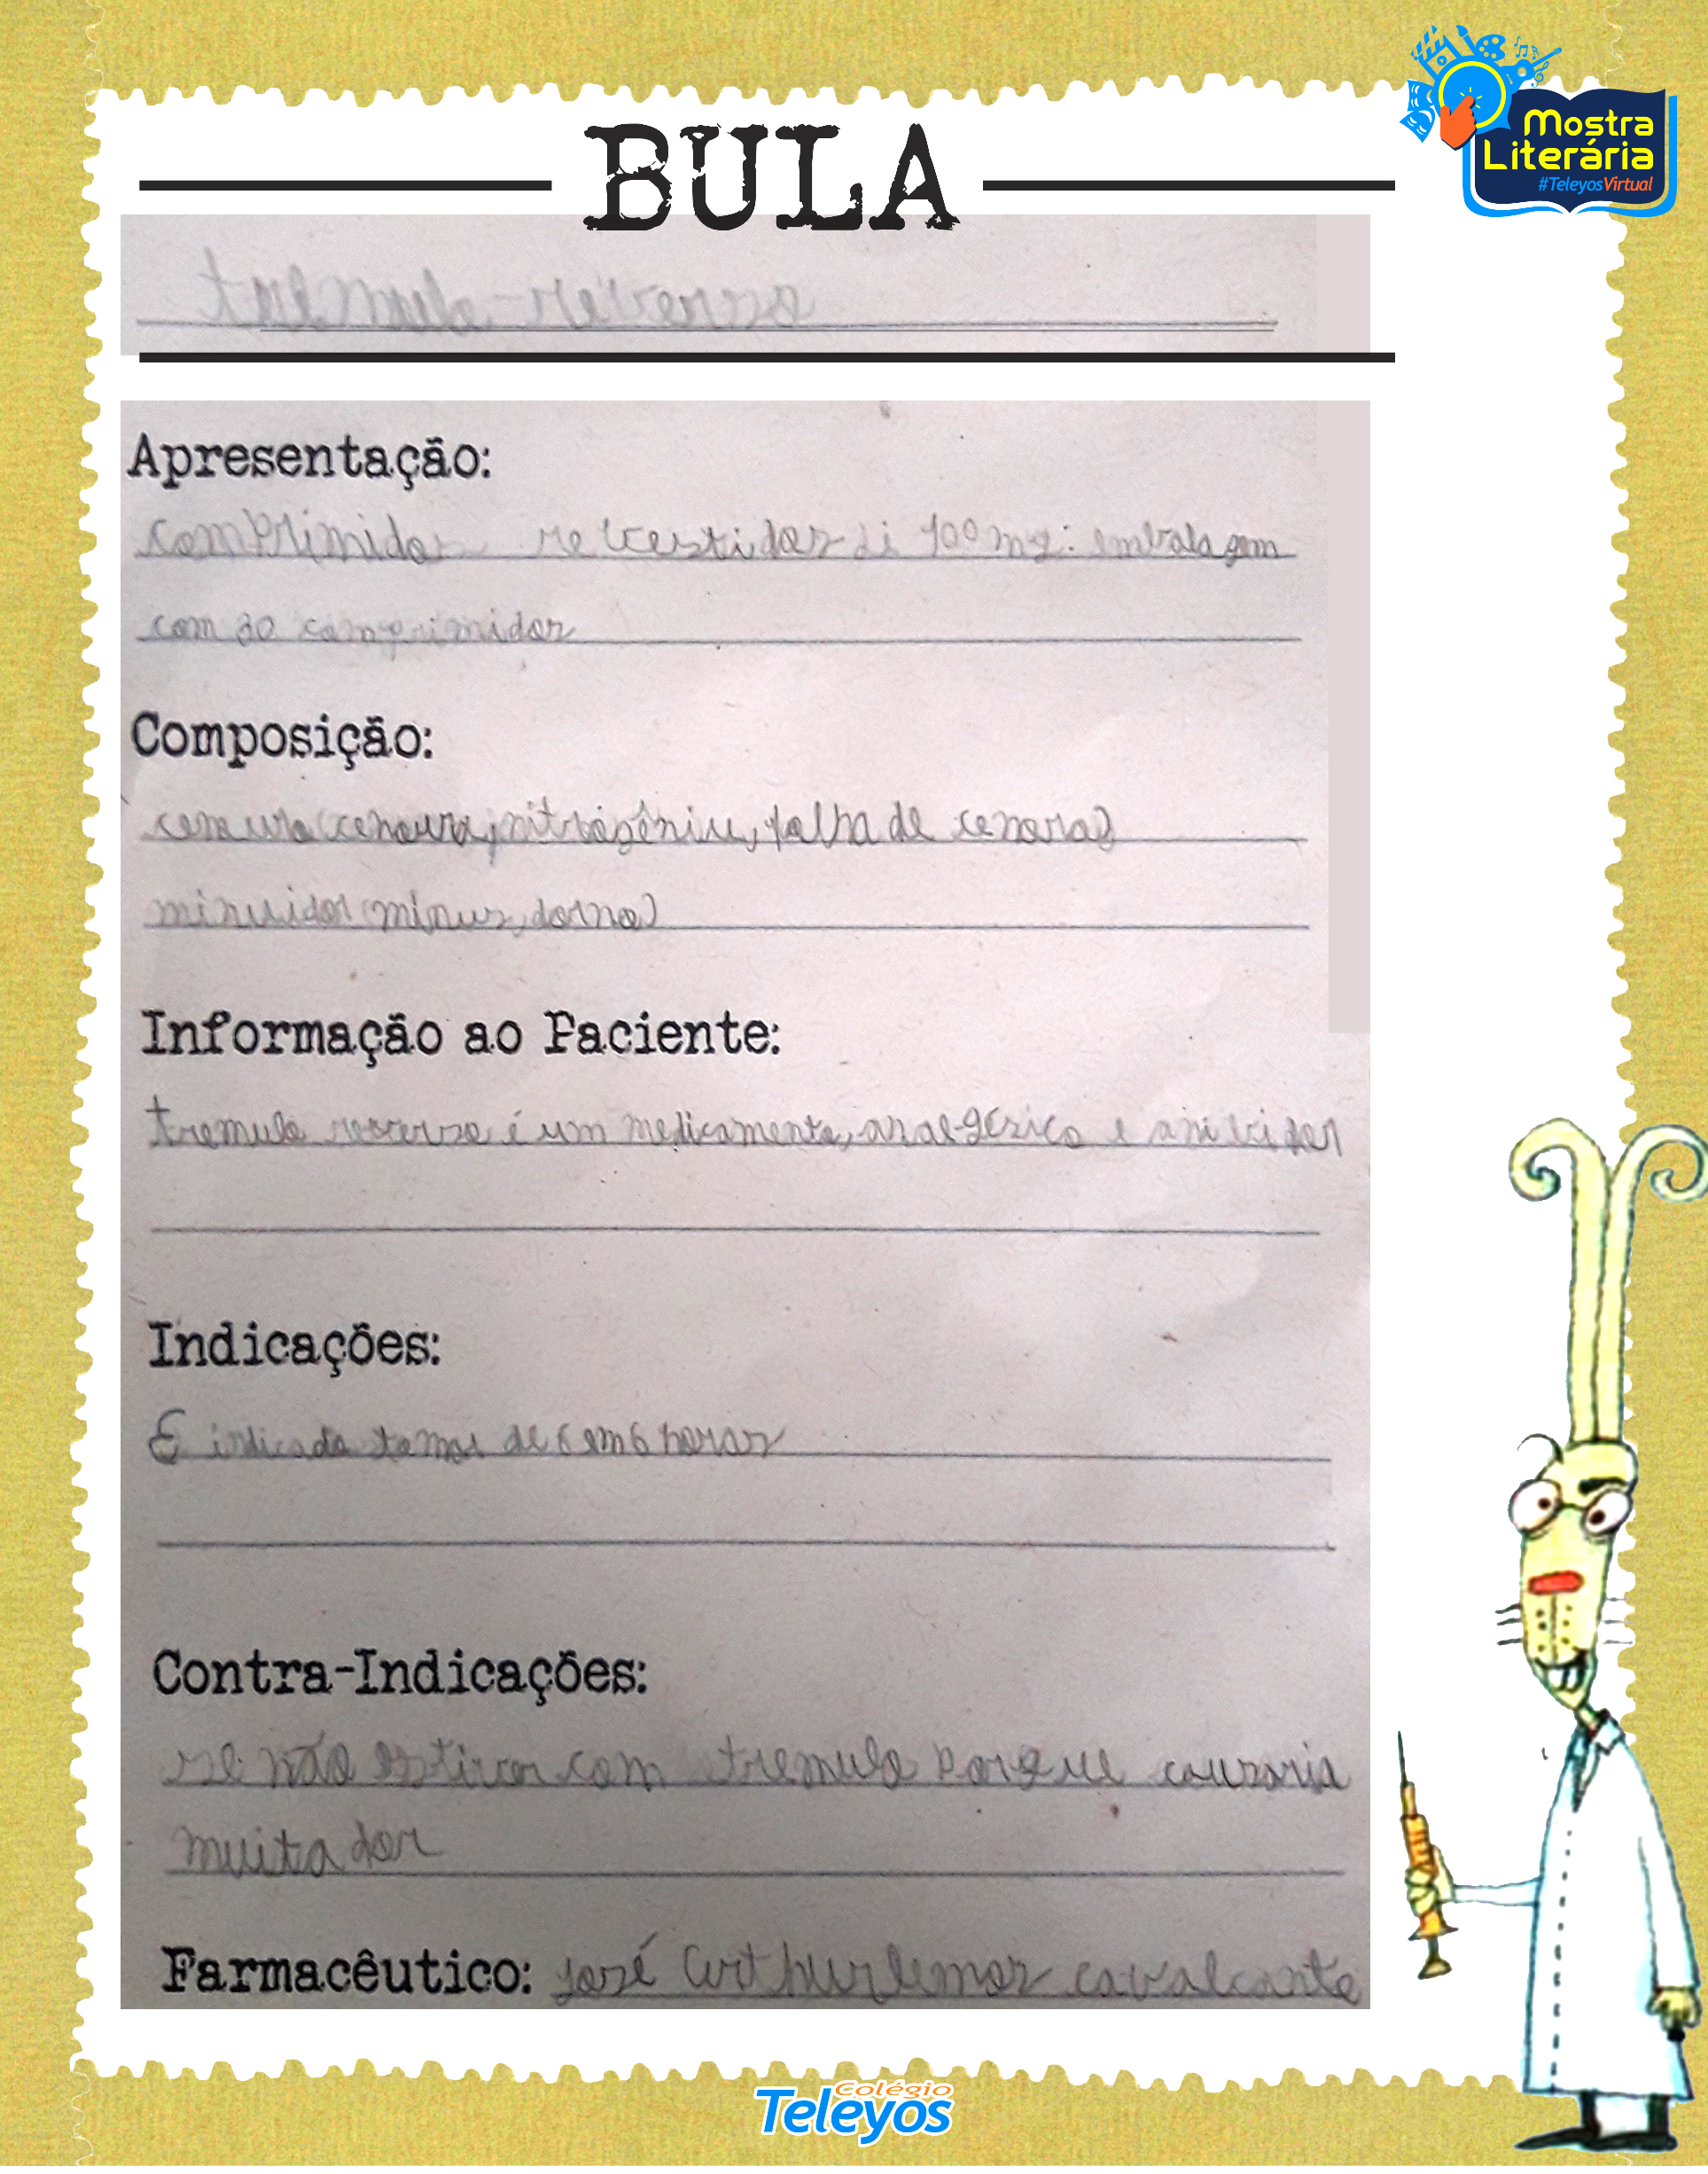 Mostra
Literária
#TeleyosVirtual
BULA
tremulo-reverso
Apresentação:
comprimidos revestidos di 100 mg: embalagem
com 20 comprimidos
Composição:
(cenoura, nitrogêniu, folha de cenora)
minuidor (minus, dorno)
Informação ao Paciente:
tremulo reverso é um medicamento, analgézico e
Indicações:
É indicado tomar de 6 em 6 horas
Contra-Indicações:
se não estiver com tremulo porque causaria
muita dor
Farmacêutico: José Arthur lemos cavalcante
Colégio
Teleyos